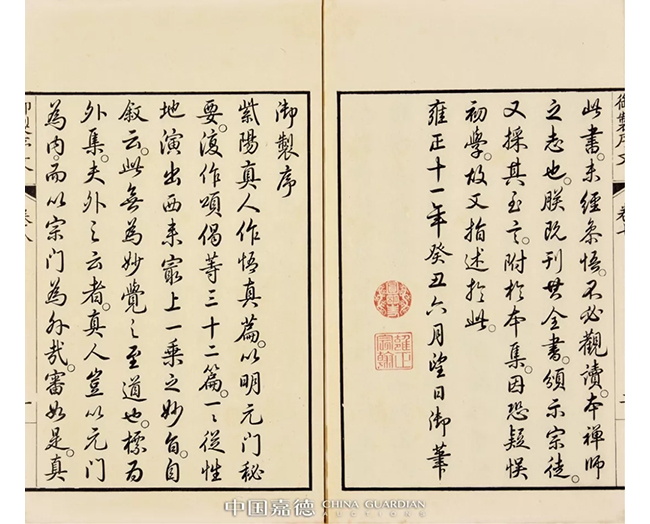 此書。未經叅悟。不必觀讀。本禪師
之志也。朕既刊其全書。頒示宗徒。
又採其至言。附於本集。因恐疑悮
初學。故又指述於此。
雍正十一年癸丑六月望日御筆
雍正宸翰
御製序
紫陽真人作悟真篇。以明元門秘
要。復作頌偈等三十二篇。一一從性
地演出西来最上一乘之妙旨。自
叙云。此無為妙覺之至道也。標為
外集。夫外之云者。真人豈以元門
為内。而以宗門為外哉。審如是。真
御製序文 卷八 一
中国嘉德 CHINA GUARDIAN AUCTIONS